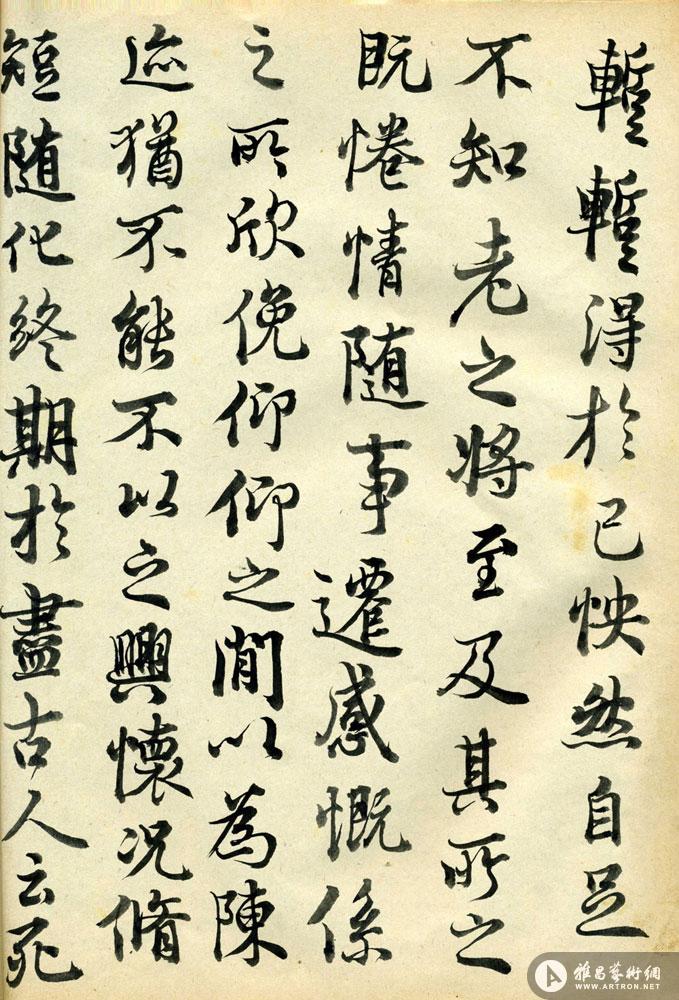 蹔蹔得於己怏然自足
不知老之將至及其所之
既惓情随事遷感慨係
之所欣俛仰仰之閒以為陳
迹猶不能不以之興懷况脩
短随化終期於盡古人云死
雅昌藝術網
WWW.ARTRON.NET